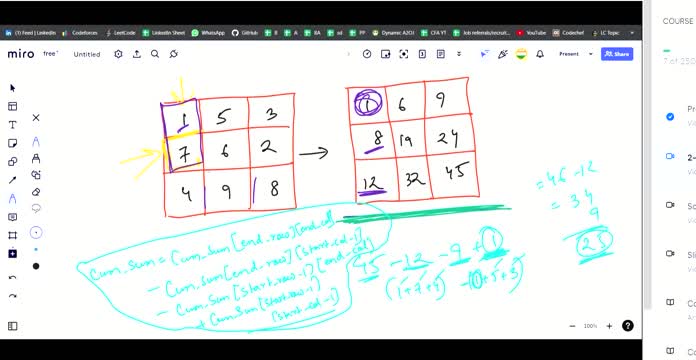 (1) Feed | LinkedIn
Codeforces
LeetCode
LinkedIn Sheet
WhatsApp
GitHub
B
A
RA
sd
PP
Dynamic A2OJ
CFA YT
Job referrals/recruit...
YouTube
Codechef
LC Topic
COURSE
miro
free
Untitled
Present
Share
7 of 250
1 5 3
7 6 2
4 9 8
1 6 9
8 19 24
12 32 45
Cum_sum = Cum_sum[end_row][end_col]
- Cum_sum[end_row][start_col-1]
- Cum_sum[start_row-1][end_col]
+ Cum_sum[start_row-1]
[start_col-1]
45 - 12 - 9 + 1
(1+7+4) - (1+5+3)
= 46 - 12
= 34
9
25
100%